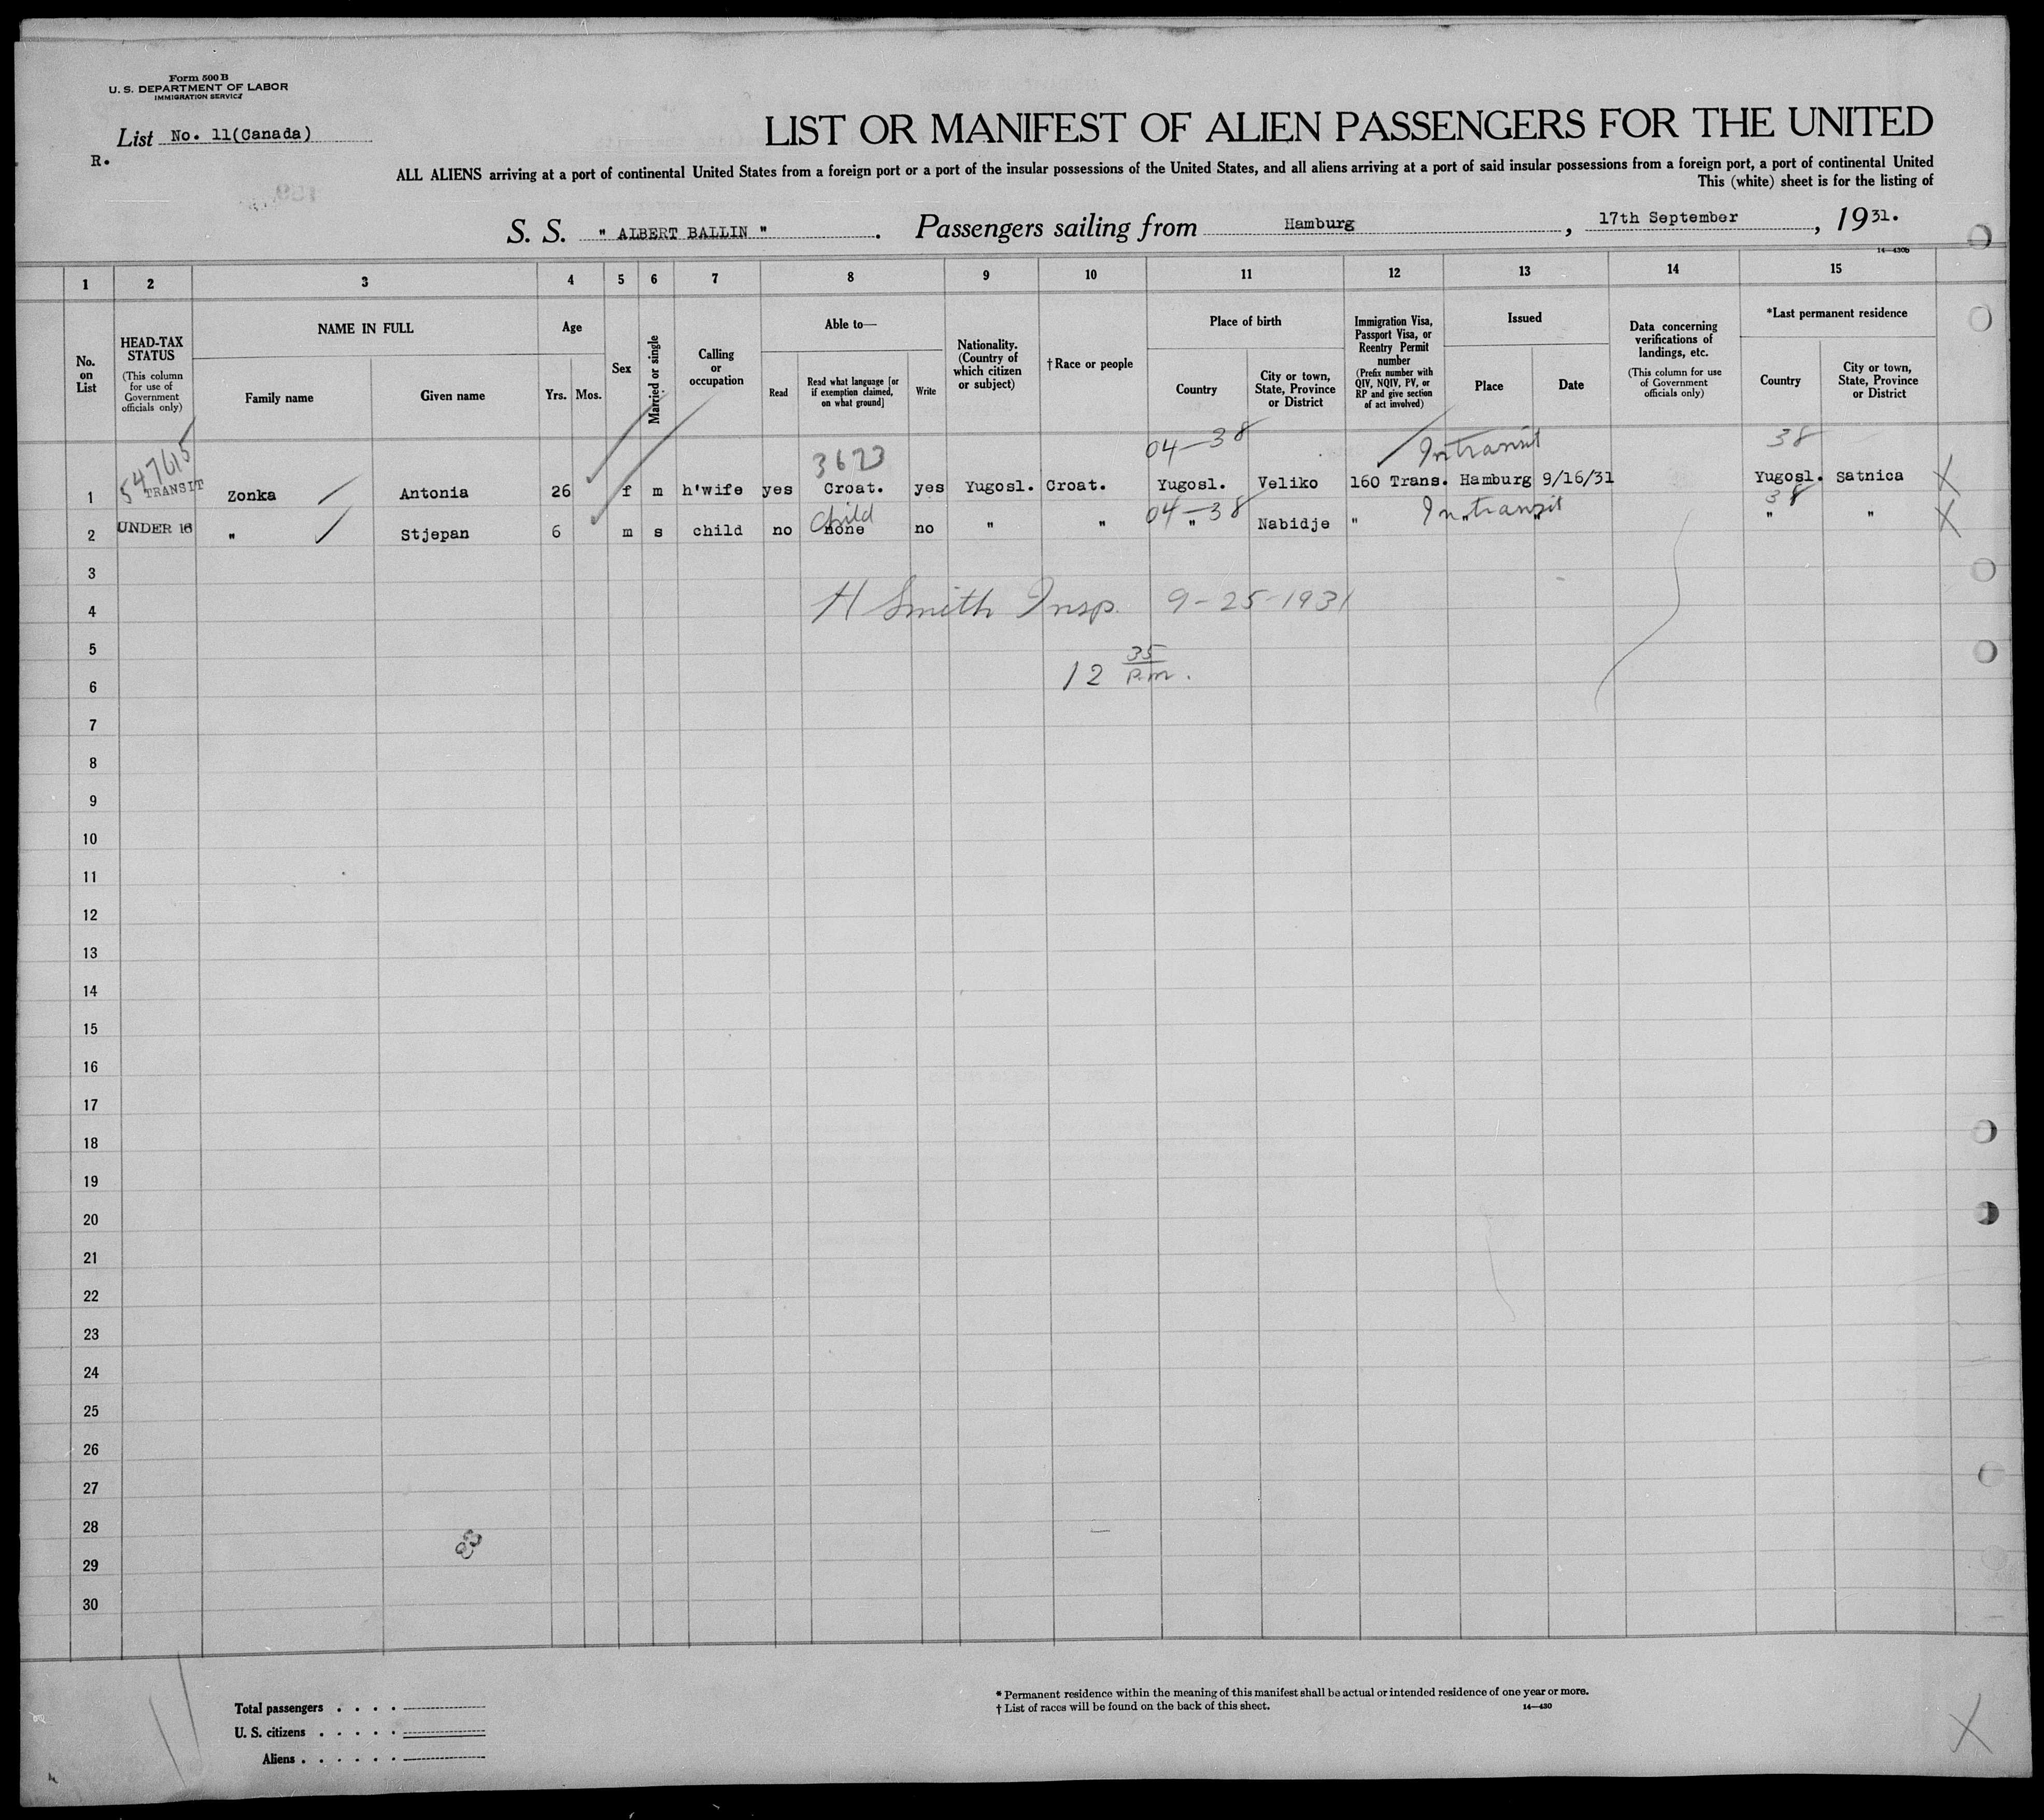 Form 500 B
U. S. DEPARTMENT OF LABOR
IMMIGRATION SERVICE
List No. 11(Canada)
R.
LIST OR MANIFEST OF ALIEN PASSENGERS FOR THE UNITED
ALL ALIENS arriving at a port of continental United States from a foreign port or a port of the insular possessions of the United States, and all aliens arriving at a port of said insular possessions from a foreign port, a port of continental United
This (white) sheet is for the listing of
S. S. " ALBERT BALLIN " . Passengers sailing from Hamburg , 17th September , 1931.
14—430b
1 2 3 4 5 6 7 8 9 10 11 12 13 14 15
No. on List
HEAD-TAX STATUS
(This column for use of Government officials only)
NAME IN FULL
Family name
Given name
Age
Yrs. Mos.
Sex
Married or single
Calling or occupation
Able to—
Read
Read what language [or if exemption claimed, on what ground]
Write
Nationality. (Country of which citizen or subject)
†Race or people
Place of birth
Country
City or town, State, Province or District
Immigration Visa, Passport Visa, or Reentry Permit number
(Prefix number with QIV, NQIV, PV, or RP and give section of act involved)
Issued
Place
Date
Data concerning verifications of landings, etc.
(This column for use of Government officials only)
*Last permanent residence
Country
City or town, State, Province or District
547615 3623 04-38 Intransit 38
1 TRANSIT Zonka Antonia 26 f m h'wife yes Croat. yes Yugosl. Croat. Yugosl. Veliko 160 Trans. Hamburg 9/16/31 Yugosl. Satnica X
Child 04-38 Intransit 38
2 UNDER 16 " Stjepan 6 m s child no none no " " " Nabidje " " " " " X
3
4 H Smith Insp. 9-25-1931
5
6 12 35 P.m.
7
8
9
10
11
12
13
14
15
16
17
18
19
20
21
22
23
24
25
26
27
28
29
30
Total passengers . . . .
U. S. citizens . . . . .
Aliens . . . . . .
* Permanent residence within the meaning of this manifest shall be actual or intended residence of one year or more.
† List of races will be found on the back of this sheet.
14—430
X